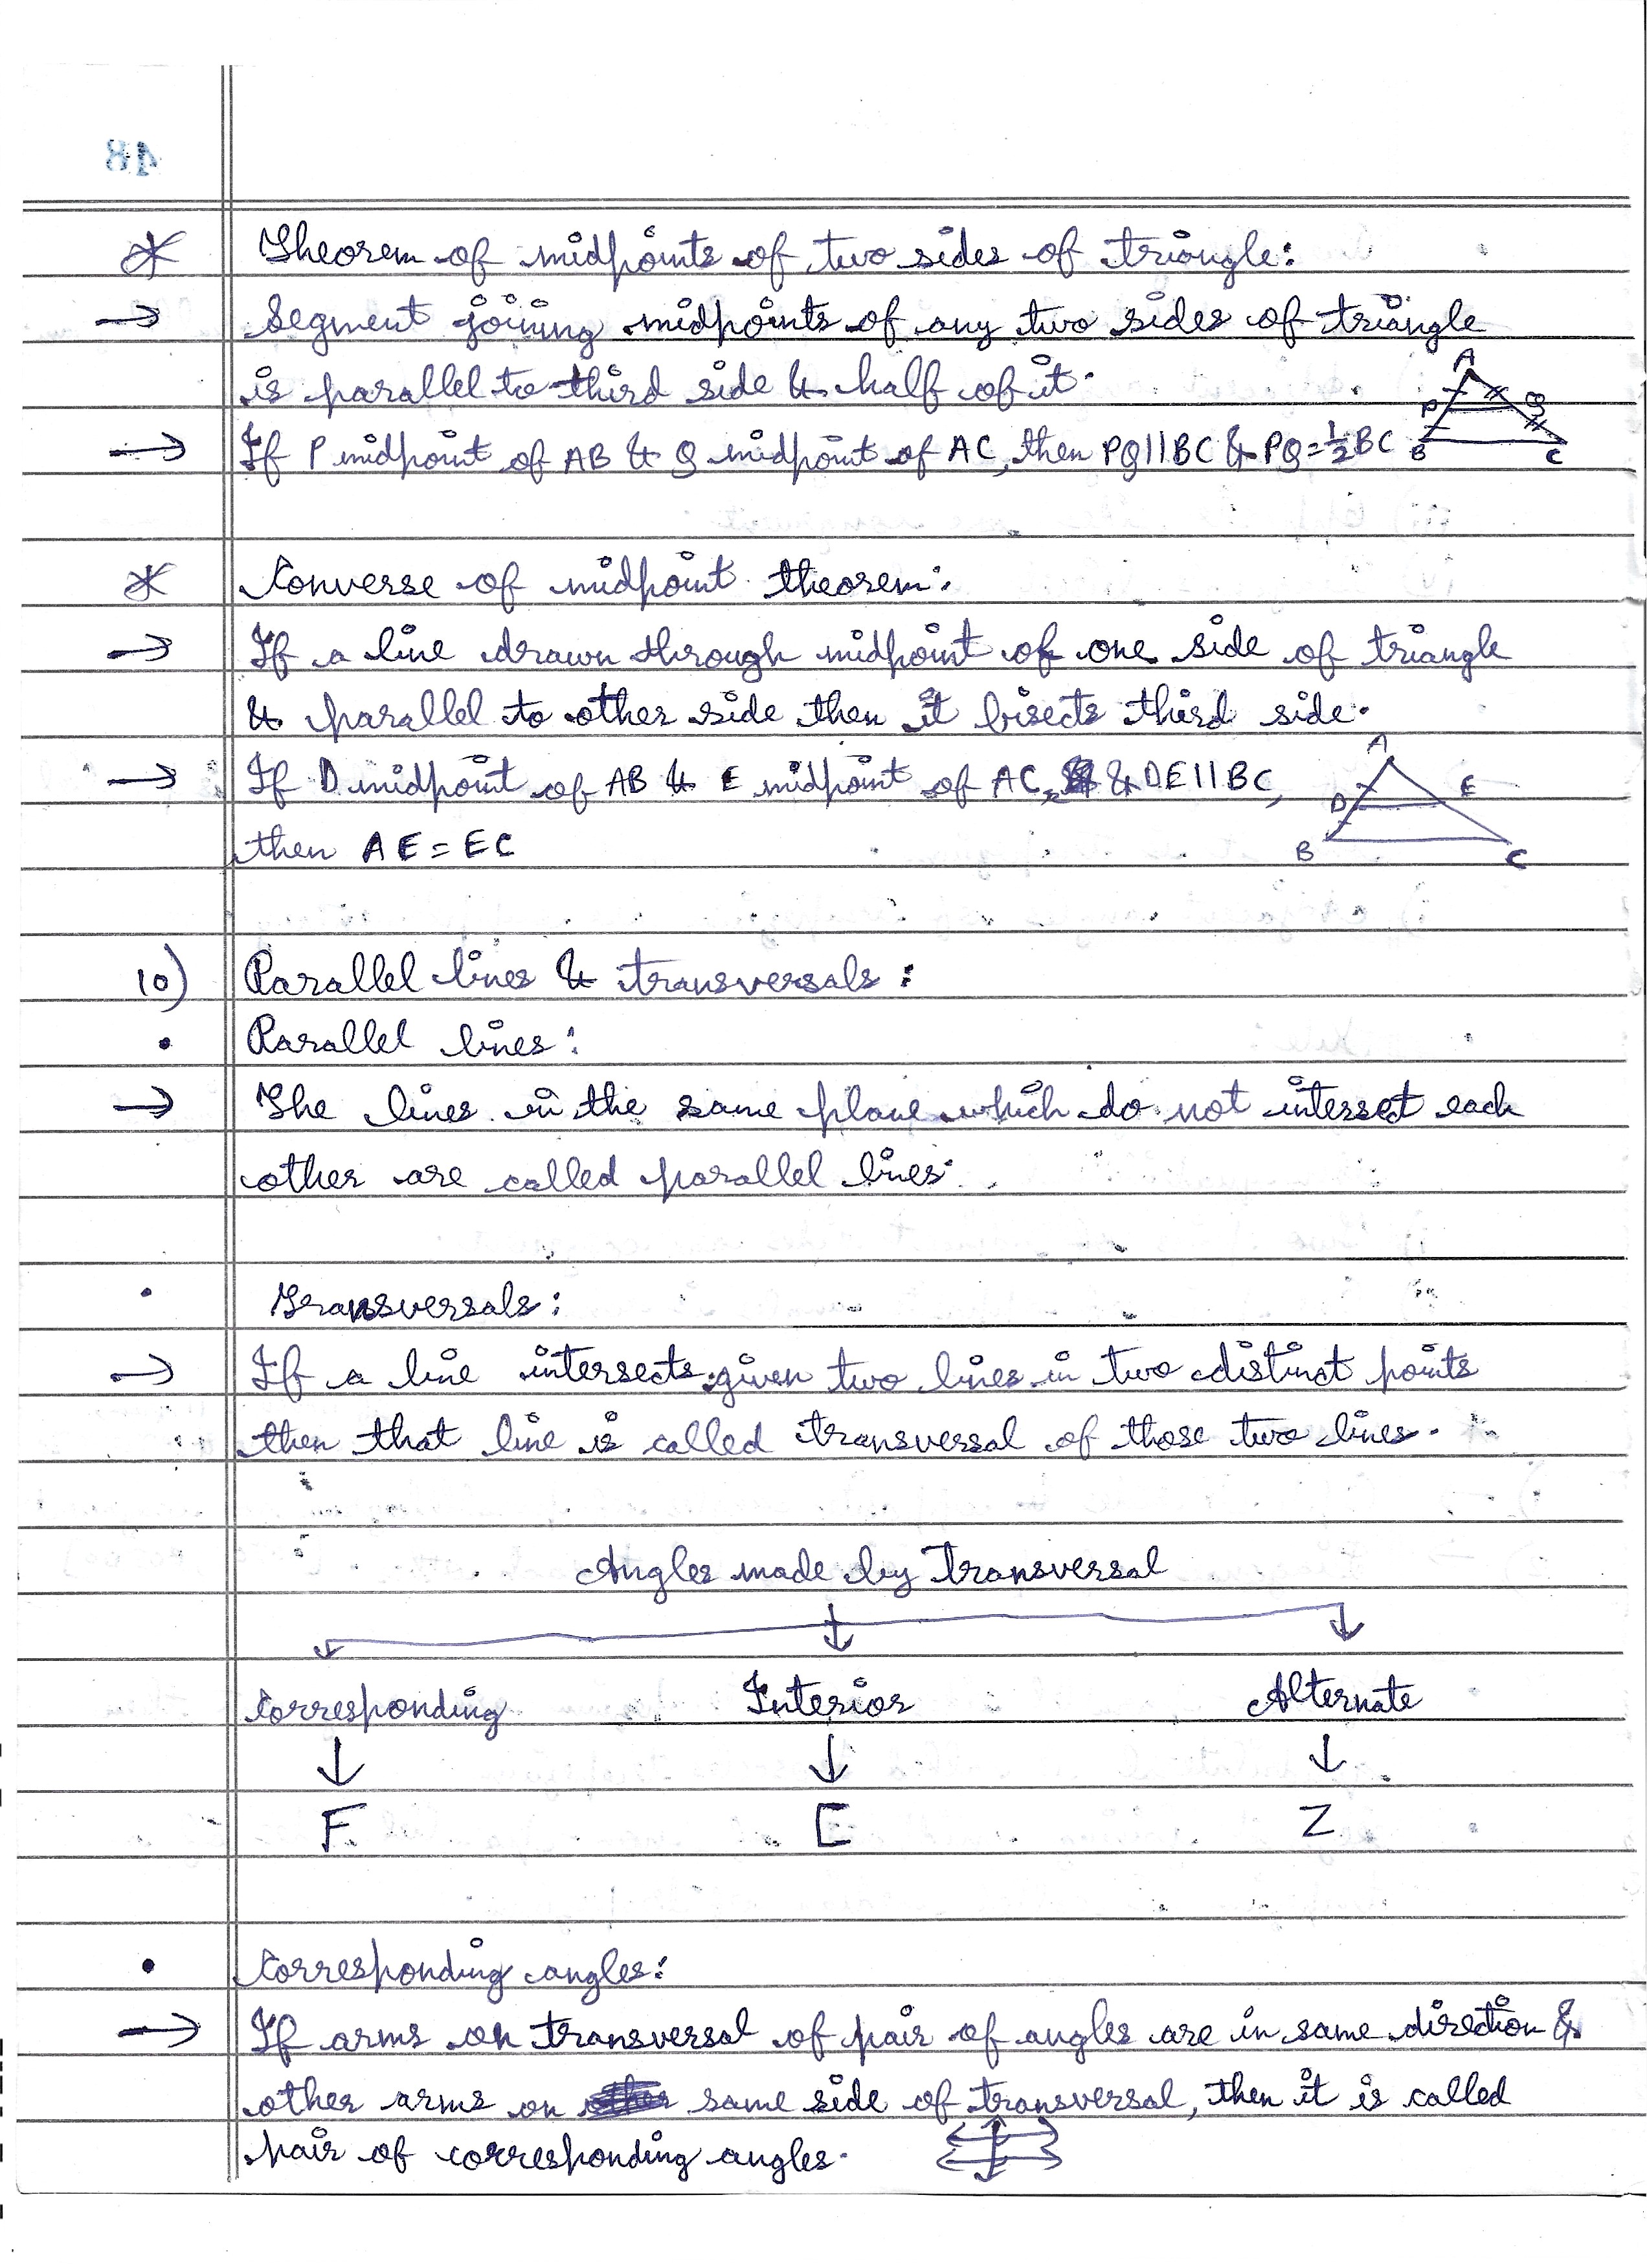 48
* Theorem of midpoints of two sides of triangle:
→ Segment joining midpoints of any two sides of triangle
is parallel to third side & half of it.
→ If P midpoint of AB & Q midpoint of AC, then PQ||BC & PQ=½BC
A
P Q
B C
* Converse of midpoint theorem:
→ If a line drawn through midpoint of one side of triangle
& parallel to other side then it bisects third side.
→ If D midpoint of AB & E midpoint of AC, & DE||BC,
then AE = EC
A
D E
B C
10) Parallel lines & transversals:
• Parallel lines:
→ The lines in the same plane which do not intersect each
other are called parallel lines.
• Transversals:
→ If a line intersects given two lines in two distinct points
then that line is called transversal of those two lines.
Angles made by transversal
↓ ↓ ↓
Corresponding Interior Alternate
↓ ↓ ↓
F C Z
• Corresponding angles:
→ If arms on transversal of pair of angles are in same direction &
other arms on same side of transversal, then it is called
pair of corresponding angles.